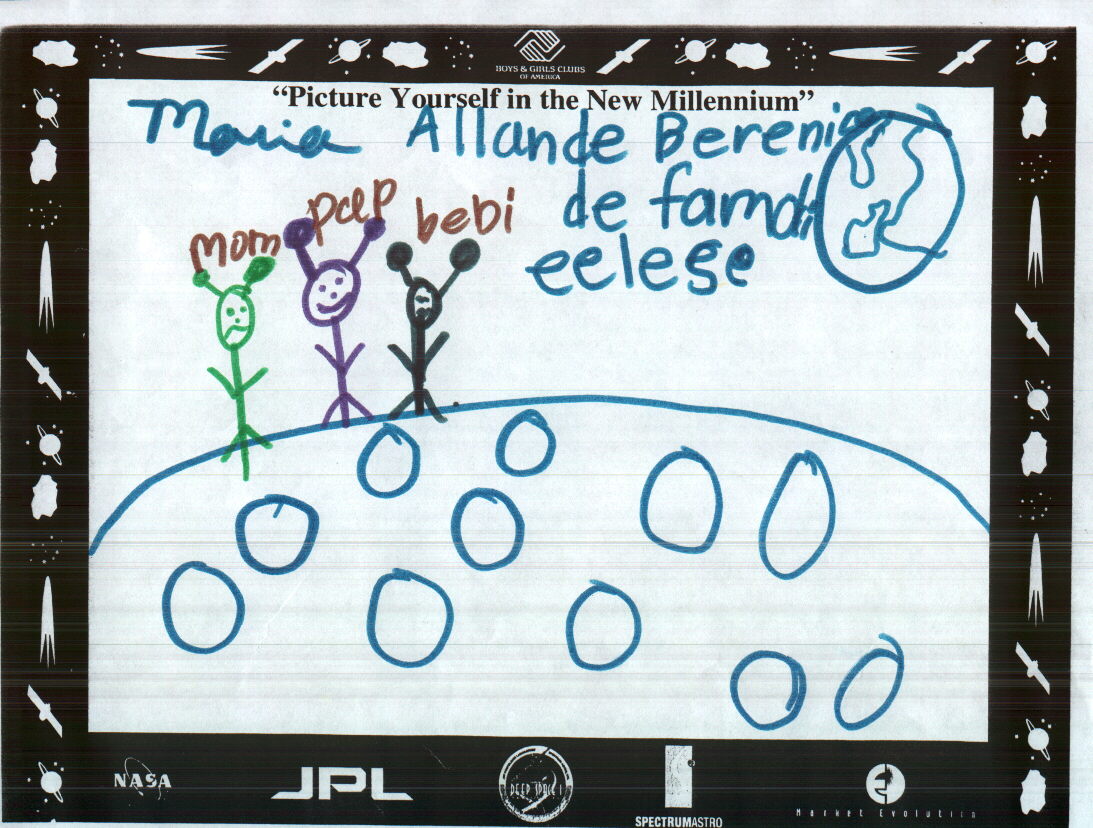 BOYS & GIRLS CLUBS
OF AMERICA
“Picture Yourself in the New Millennium”
Maria Allande Bereni
de famdi
eelese
mom
pap
bebi
NASA
JPL
DEEP SPACE 1
SPECTRUMASTRO
Market Evolution